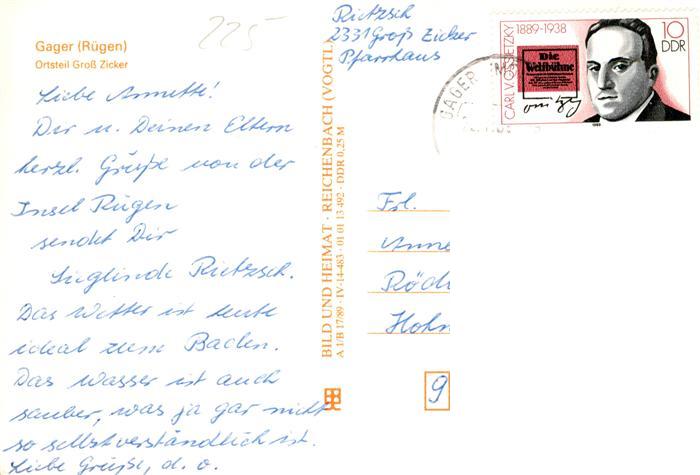 225
Gager (Rügen)
Ortsteil Groß Zicker
Liebe Annette!
Dir u. Deinen Eltern
herzl. Grüße von der
Insel Rügen
sendet Dir
Sieglinde Rietzsch.
Das Wetter ist heute
ideal zum Baden.
Das Wasser ist auch
sauber, was ja gar nicht
so selbstverständlich ist.
Liebe Grüße, d. o.
BILD UND HEIMAT · REICHENBACH (VOGTL.
A 1/B 17/89 · IV-14-483 · 01 01 13 492 · DDR 0,25 M
Rietzsch
2331 Groß Zicker
Pfarrhaus
GAGER
CARL V. OSSIETZKY 1889-1938
Die
Weltbühne
10
DDR
1989
Frl.
Anne
Röd
Hohn
9